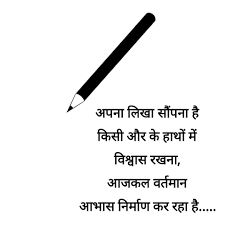 अपना लिखा सौंपना है
किसी और के हाथों में
विश्वास रखना,
आजकल वर्तमान
आभास निर्माण कर रहा है.....